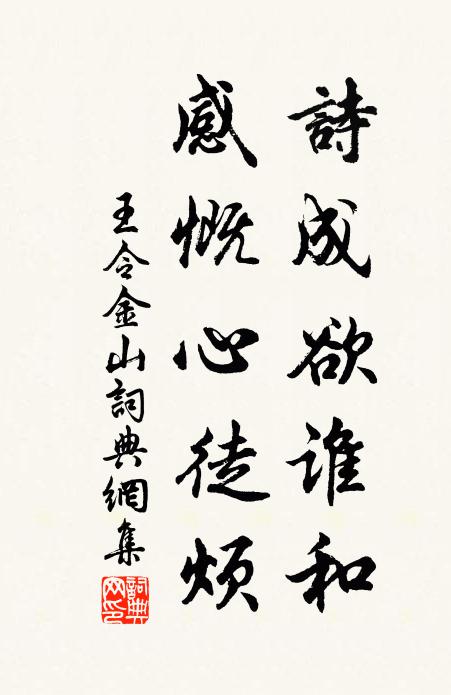 詩成欲誰和
感慨心徒煩
王令金山詞典網集
詞典网印